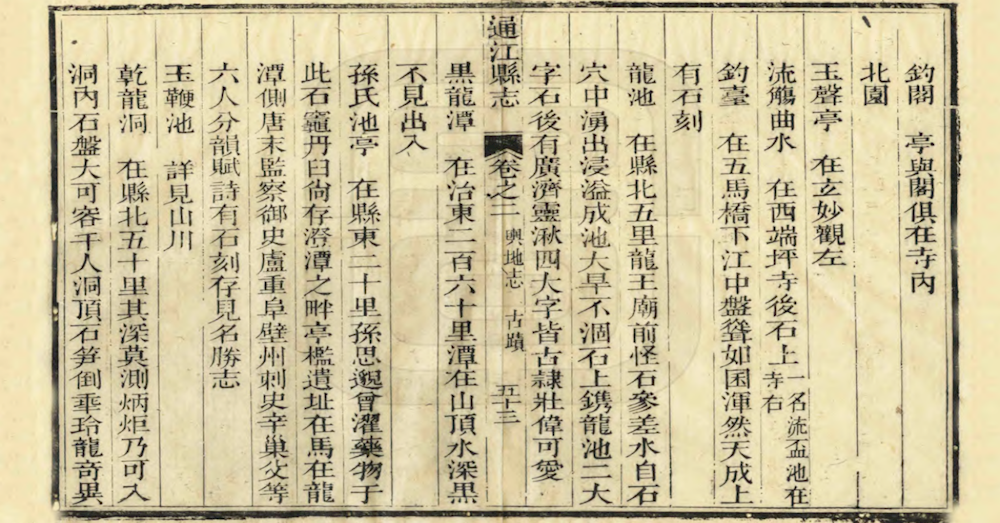 釣閣　亭與閣俱在寺內
北園
玉聲亭　在玄妙觀左
流觴曲水　在西端坪寺後石上一名流盃池在寺右
釣臺　在五馬橋下江中盤聳如囷渾然天成上
有石刻
龍池　在縣北五里龍王廟前怪石參差水自石
穴中湧出浸溢成池大旱不涸石上鐫龍池二大
字石後有廣濟靈湫四大字皆古隸壯偉可愛
通江縣志　卷之二　輿地志　古蹟　五十三
黑龍潭　在治東二百六十里潭在山頂水深黑
不見出入
孫氏池亭　在縣東二十里孫思邈曾濯藥物于
此石竈丹臼尚存澄潭之畔亭檻遺址在焉在龍
潭側唐末監察御史盧重阜壁州刺史辛巢父等
六人分韻賦詩有石刻存見名勝志
玉鞭池　詳見山川
乾龍洞　在縣北五十里其深莫測炳炬乃可入
洞內石盤大可容千人洞頂石笋倒垂玲龍奇異